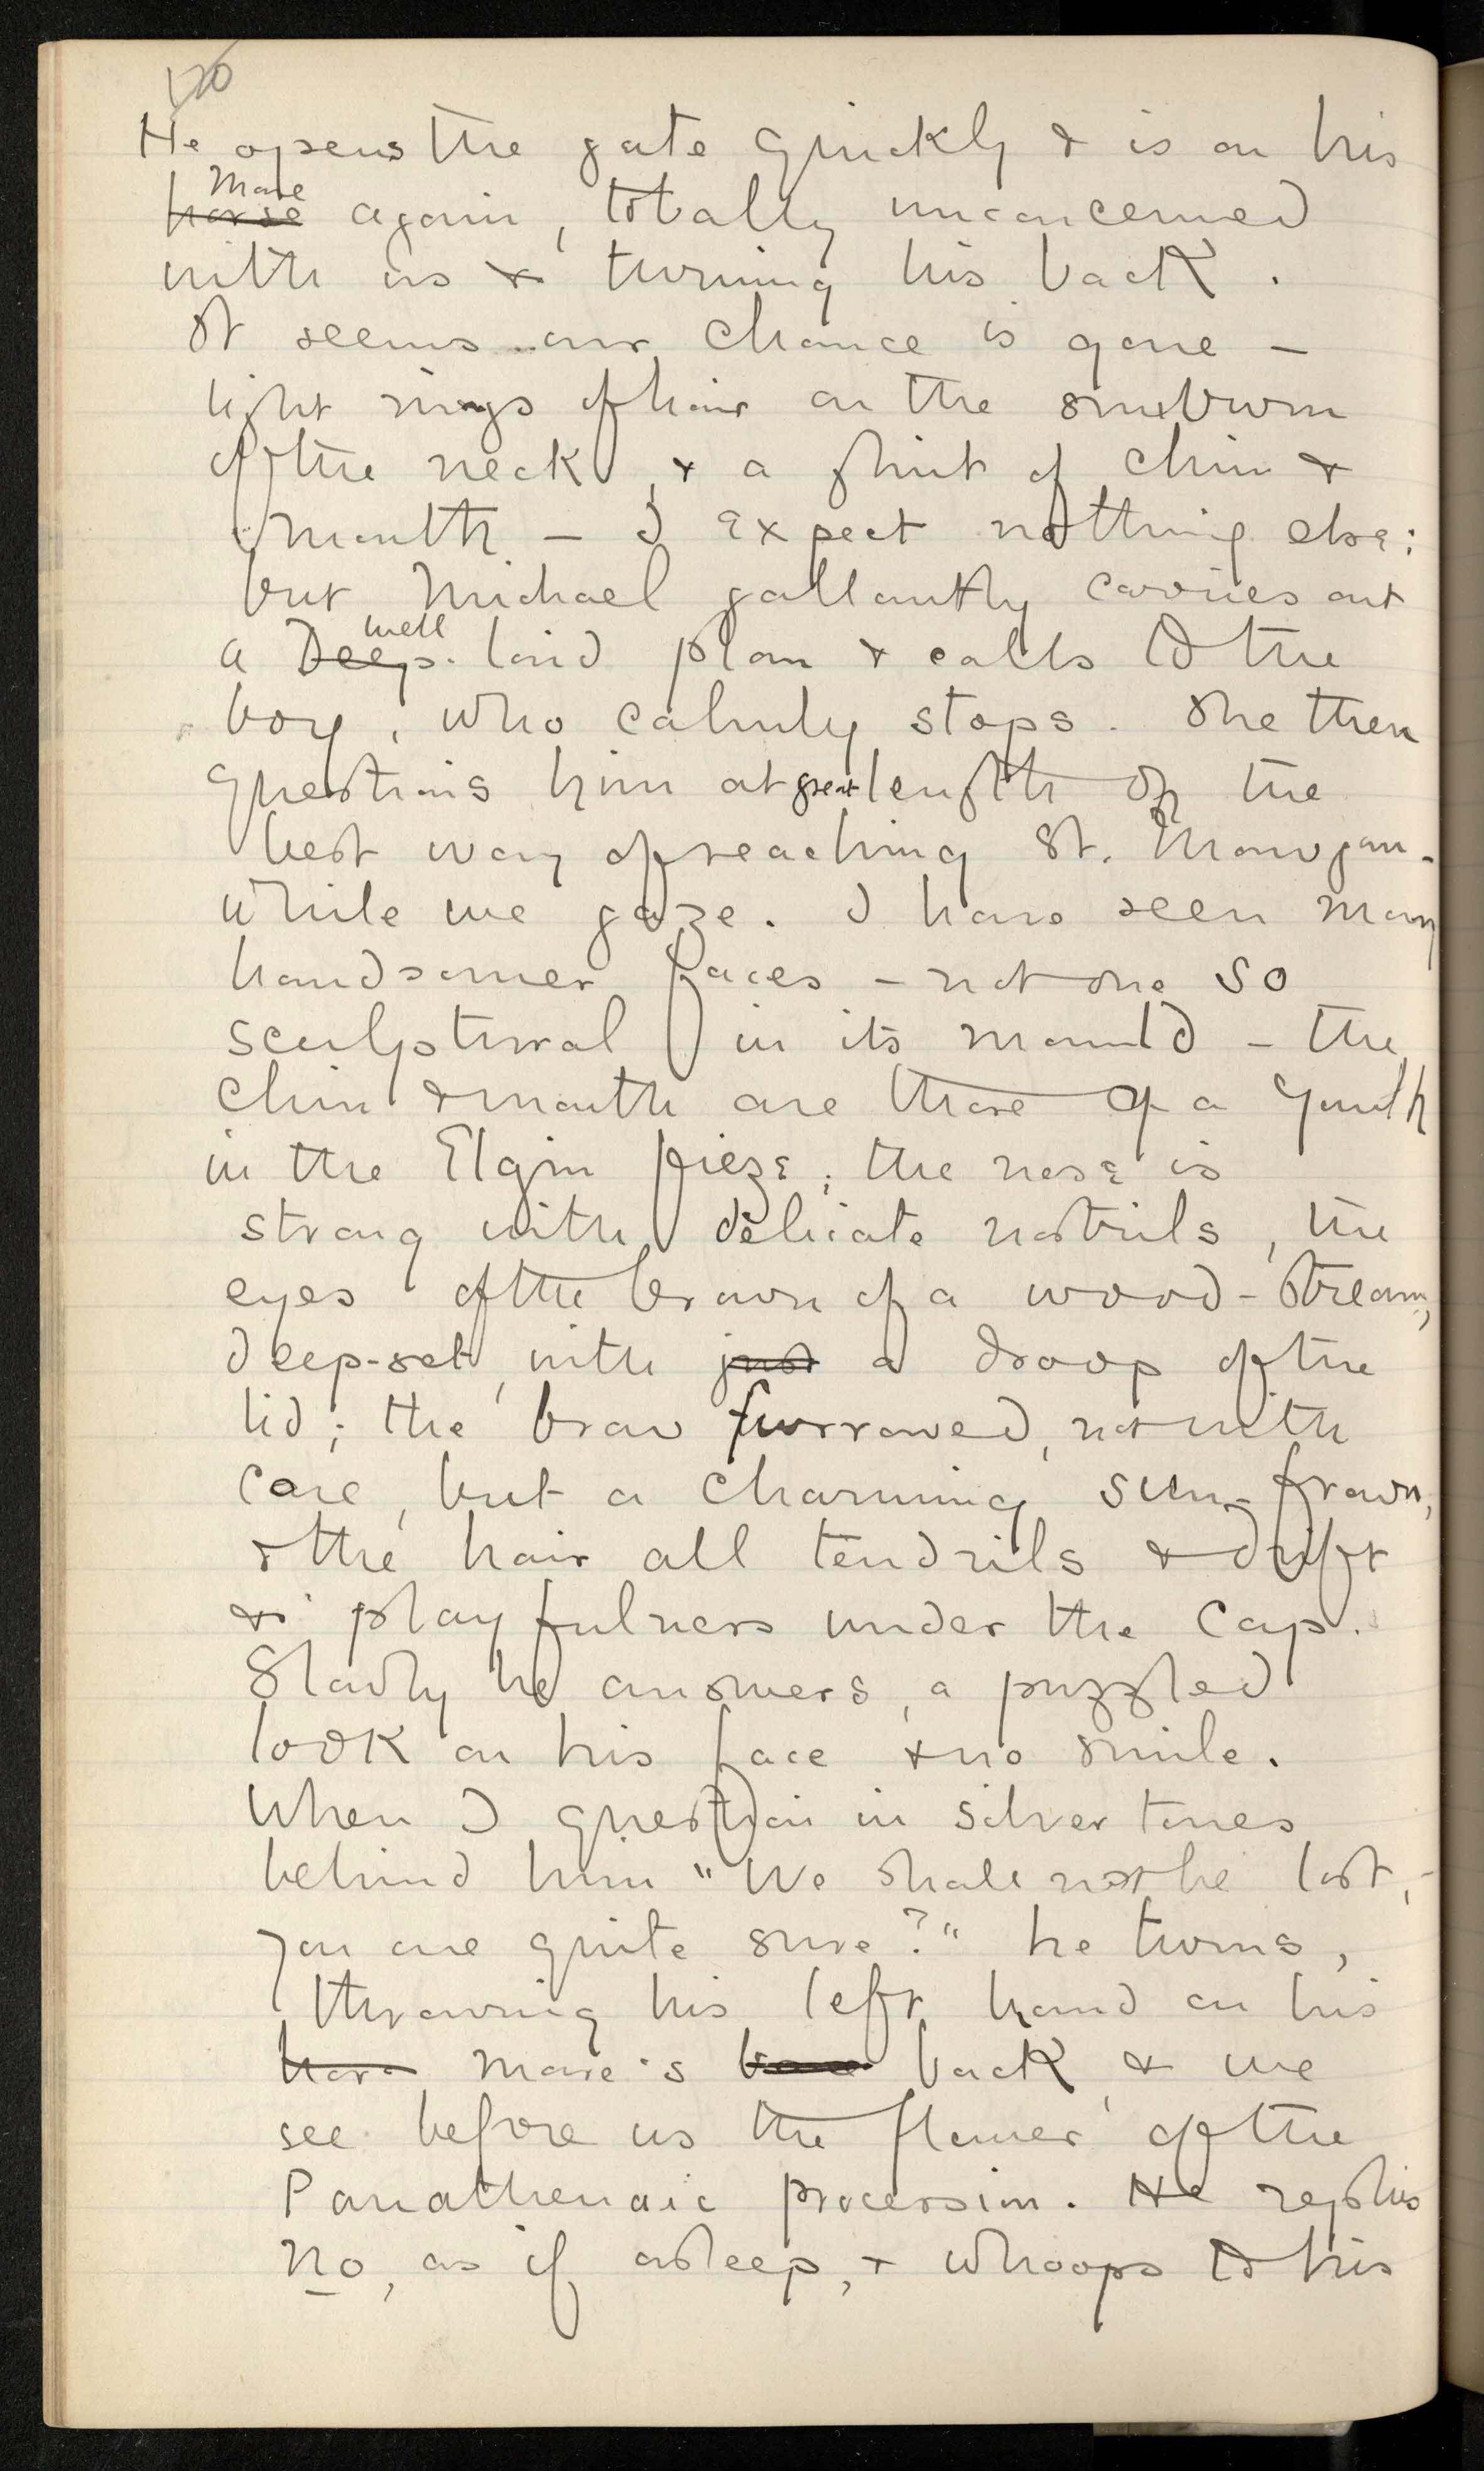 120
He opens the gate quickly & is on his
mare
horse again, totally unconcerned
with us & turning his back.
It seems our chance is gone –
light rings of hair on the sunburn
of the neck, & a glint of chin &
mouth – I expect nothing else;
but Michael gallantly carries out
well
a Deep-laid plan & calls to the
boy, who calmly stops. She then
questions him at great length on the
best way of reaching St. Mawgan –
while we gaze. I have seen many
handsomer faces – not one so
sculptural in its mould – the
chin & mouth are those of a youth
in the Elgin frieze; the nose is
strong with delicate nostrils, the
eyes of the brown of a wood-stream,
deep-set, with just a droop of the
lid; the brow furrowed, not with
care, but a charming sun-frown,
& the hair all tendrils & drift
& playfulness under the cap.
Slowly he answers, a puzzled
look on his face & no smile.
When I question in silver tones
behind him "We shall not be lost, –
you are quite sure?" he turns,
throwing his left hand on his
hors mare's back, & we
see before us the flower of the
Panathenaic procession. He replies
No, as if asleep, & whoops to his